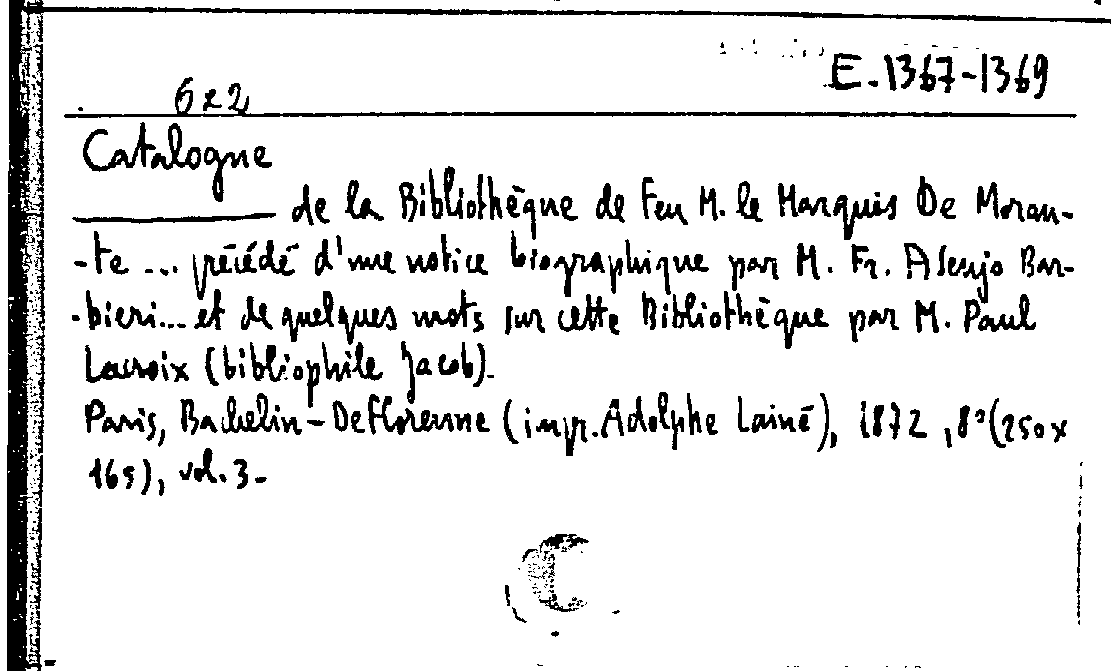 E.1367-1369
6x2
Catalogue
de la Bibliothèque de Feu M. le Marquis De Moran-
-te ... précédé d'une notice biographique par M. Fr. Asenjo Bar-
-bieri... et de quelques mots sur cette Bibliothèque par M. Paul
Lacroix (bibliophile Jacob).
Paris, Bachelin-Deflorenne (impr. Adolphe Lainé), 1872, 8º (250x
165), vol. 3-